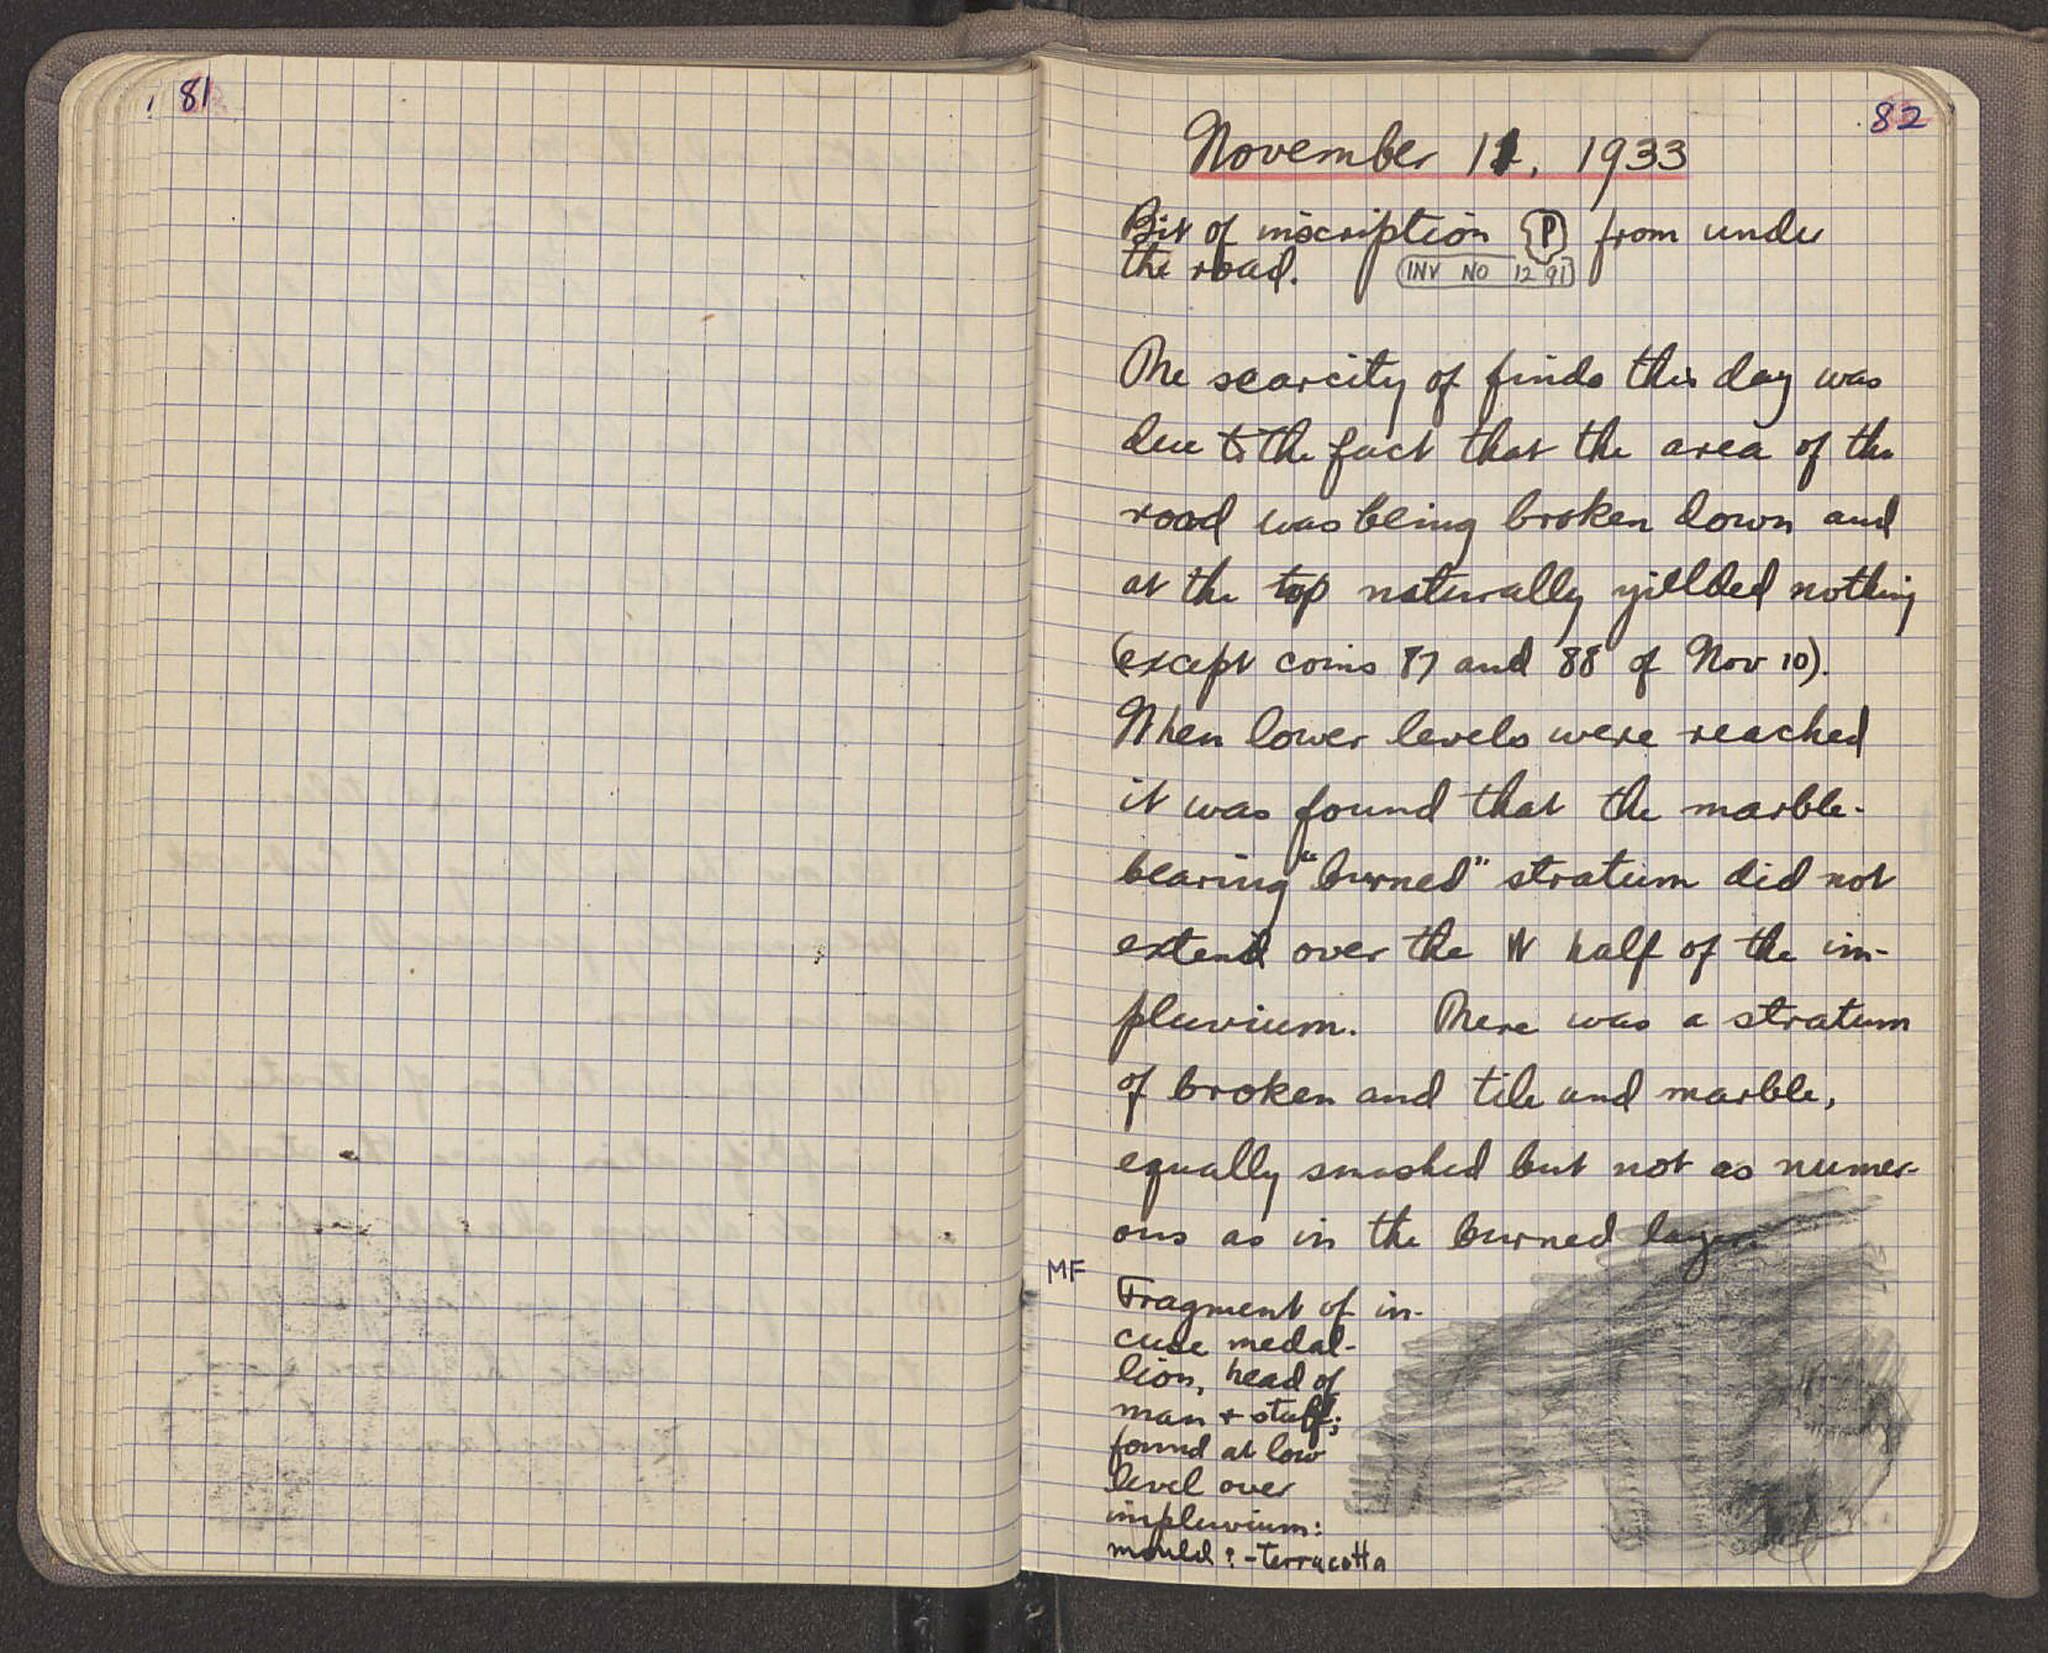 81
82
November 11, 1933
Bit of inscription P from under
the road. INV NO 1291
The scarcity of finds this day was
due to the fact that the area of the
road was being broken down and
at the top naturally yillded nothing
(except coins 87 and 88 of Nov 10).
When lower levels were reached
it was found that the marble-
bearing "burned" stratum did not
extend over the W half of the im-
pluvium. There was a stratum
of broken and tile and marble,
equally smashed but not as numer-
ous as in the burned layer.
MF
Fragment of in-
cuse medal-
lion, head of
man + staff;
found at low
level over
impluvium:
mould? - terracotta